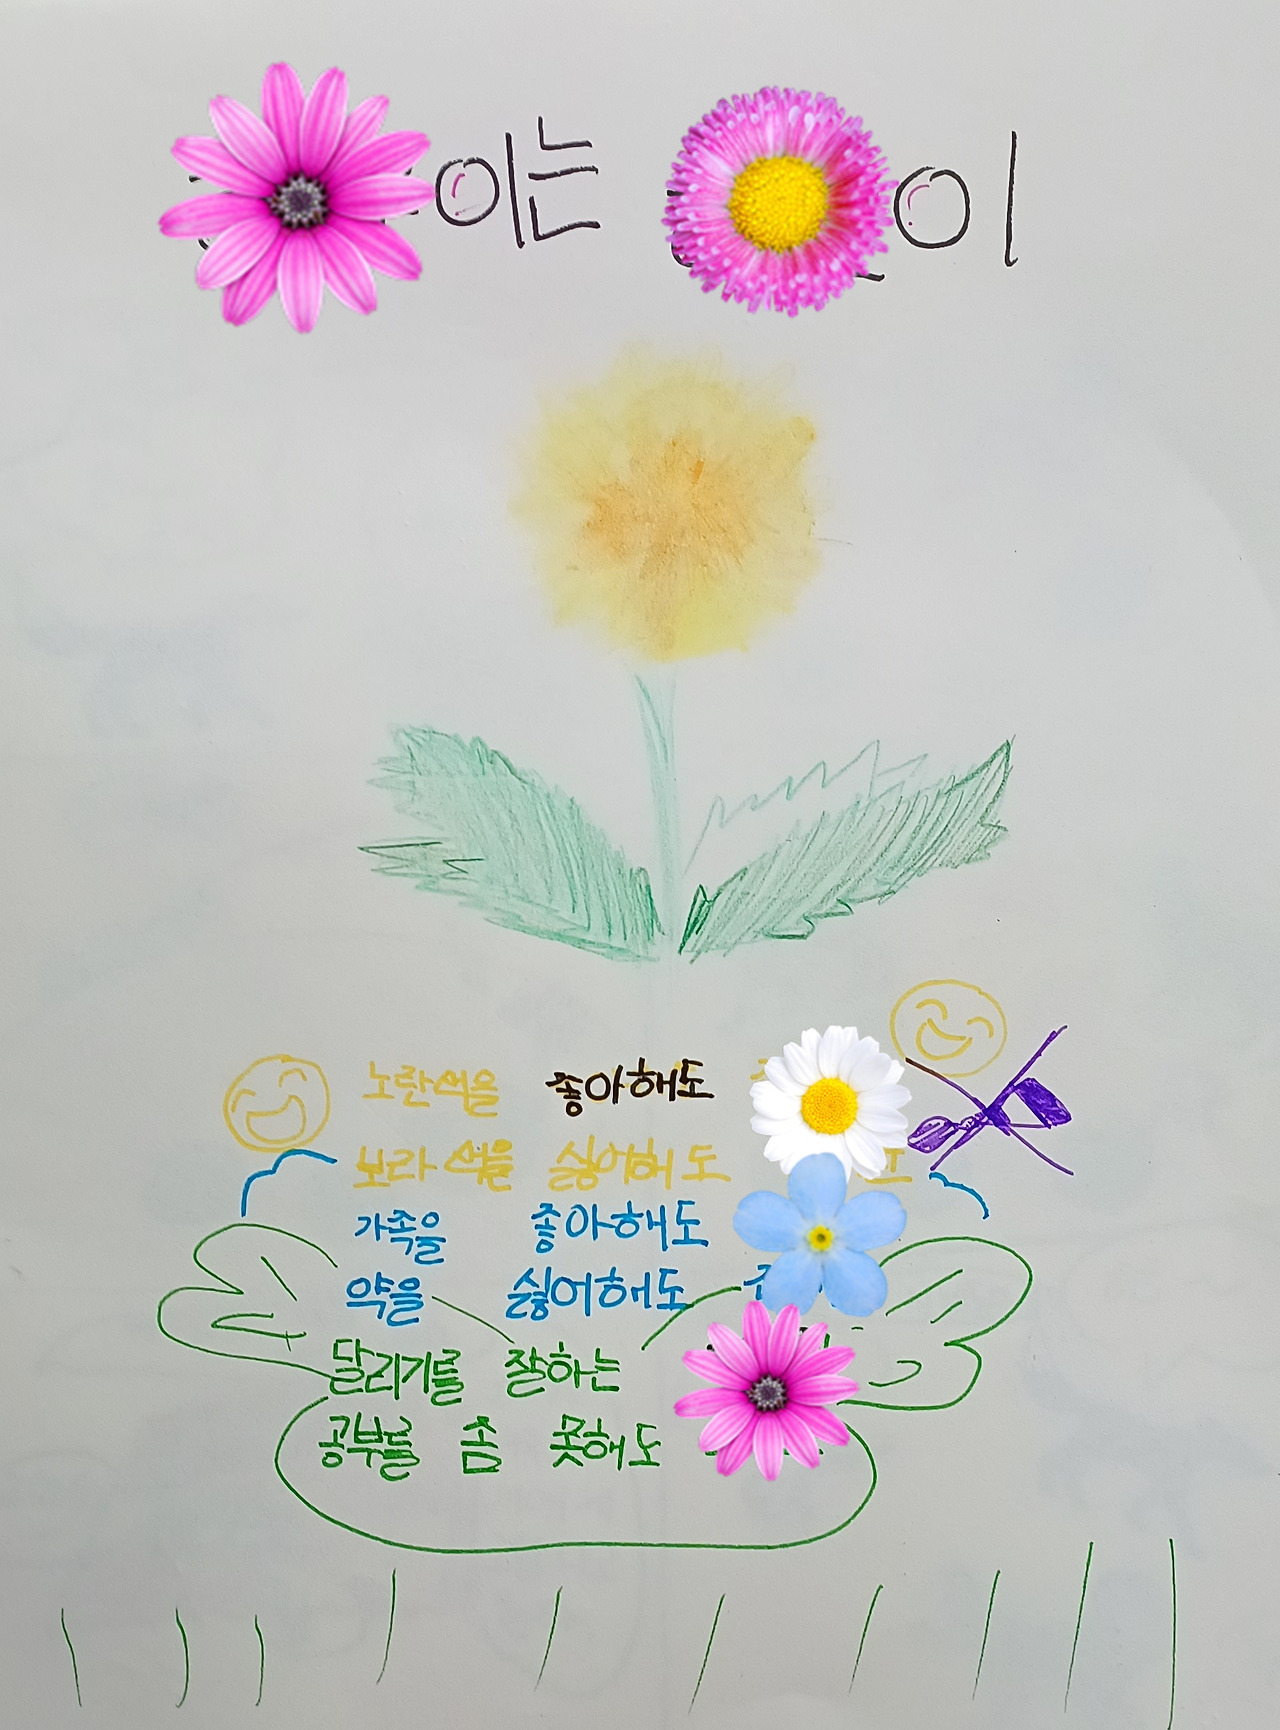 이는 이
노란색을 좋아해도
보라색을 싫어해도
가족을 좋아해도
약을 싫어해도
달리기를 잘하는
공부를 좀 못해도